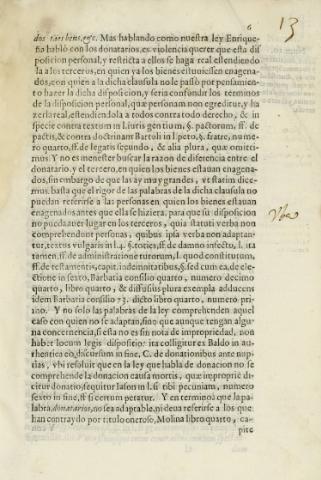 6
13
dos tães bens, &c. Mas hablando como nuestra ley Enrique-
ña habló con los donatarios, es violencia querer que esta dis
posicion personal, y restricta a ellos se haga real estendiendo
la a los terceros, en quien ya los bienes estuuiessen enagena-
dos, con quien a la dicha clausula no le passò por pensamien-
to hazer la dicha disposicion, y seria confundir los terminos
de la disposicion personal, quæ personam non egreditur, y ha
zerla real, estendiendola a todos contra todo derecho, & in
specie contra textum in l. iuris gentium. §. pactorum, ff. de
pactis, & contra doctrinam Bartoli in l. peto. §. fratre, nume-
ro quarto, ff. de legatis secundo, & alia plura, quæ omitti-
mus. Y no es menester buscar la razon de diferencia entre el
donatario, y el tercero, en quien los bienes estauan enagena-
dos, sin embargo de que la ay muy grandes, vt statim dice-
mus. basta que el rigor de las palabras de la dicha clausula no
puedan referirse a las personas en quien los bienes estauan
enagenados antes que ella se hiziera, para que su disposicion
no pueda auer lugar en los terceros, quia statuti verba non
comprehendunt personas, quibus ipsa verba non adaptan-
tur, textus vulgaris in l. 4. §. toties, ff. de damno infecto, l. ita
tamen, ff. de administratione tutorum, l. quod constitutum,
ff. de testamentis, capit. indemnitatibus, §. sed cum ea, de ele-
ctione in sexto, Barbatia consilio quarto, numero decimo
quarto, libro quarto, & diffusius plura exempla adducens
idem Barbatia consilio 73. dicto libro quarto, numero pri-
mo. Y no solo las palabras de la ley comprehenden aquel
caso con quien no se adaptan, sino que aunque tengan algu-
na concernencia, si esta no es sin nota de impropriedad, non
habet locum legis dispositio: ita colligitur ex Baldo in au-
thentico eo, discursum in fine, C. de donationibus ante nup-
tias, vbi resoluit que en la ley que habla de donacion no se
comprehende la donacion causa mortis, quæ impropriè di-
citur donatio, sequitur Iason in l. si tibi pecuniam, numero
sexto in fine, ff. si certum petatur. Y en terminos que la pa-
labra, donatarios, no sea adaptable, ni deua referirse a los que
han contraydo por titulo oneroso, Molina libro quarto, ca-
pite